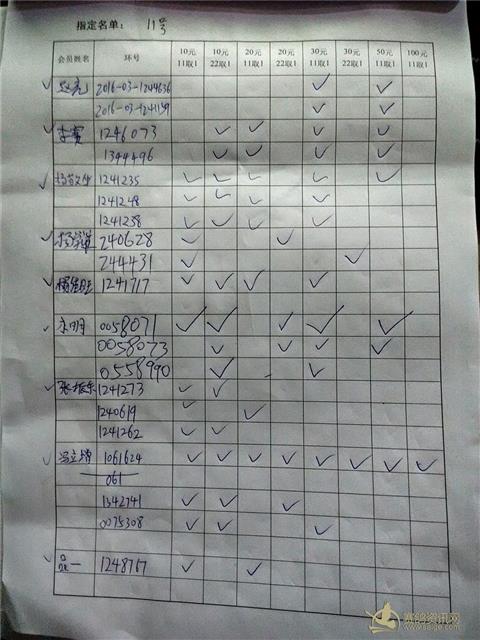 指定名单： 11号
会员姓名 环号 10元 11取1 10元 22取1 20元 11取1 20元 22取1 30元 11取1 30元 22取1 50元 11取1 100元 11取1
2016-03-1244636 ✓ ✓
2016-03-1241139 ✓ ✓
李赛 1246073 ✓ ✓ ✓ ✓
1344496 ✓ ✓ ✓ ✓
1241235 ✓ ✓ ✓ ✓ ✓
1241248 ✓ ✓ ✓ ✓
1241238 ✓ ✓ ✓ ✓
240628 ✓ ✓
244431 ✓ ✓
1241717 ✓ ✓ ✓ ✓
0058071 ✓ ✓ ✓ ✓ ✓
0058073 ✓ ✓ ✓ ✓
0558990 ✓ ✓
张振东 1241273 ✓ ✓
1240619 ✓ ✓
1241262 ✓ ✓
冯立增 1061624 ✓ ✓ ✓ ✓ ✓ ✓ ✓ ✓
061
1342741 ✓ ✓ ✓
0075308 ✓ ✓ ✓
1248757 ✓ ✓
赛鸽资讯网
www.saige.com